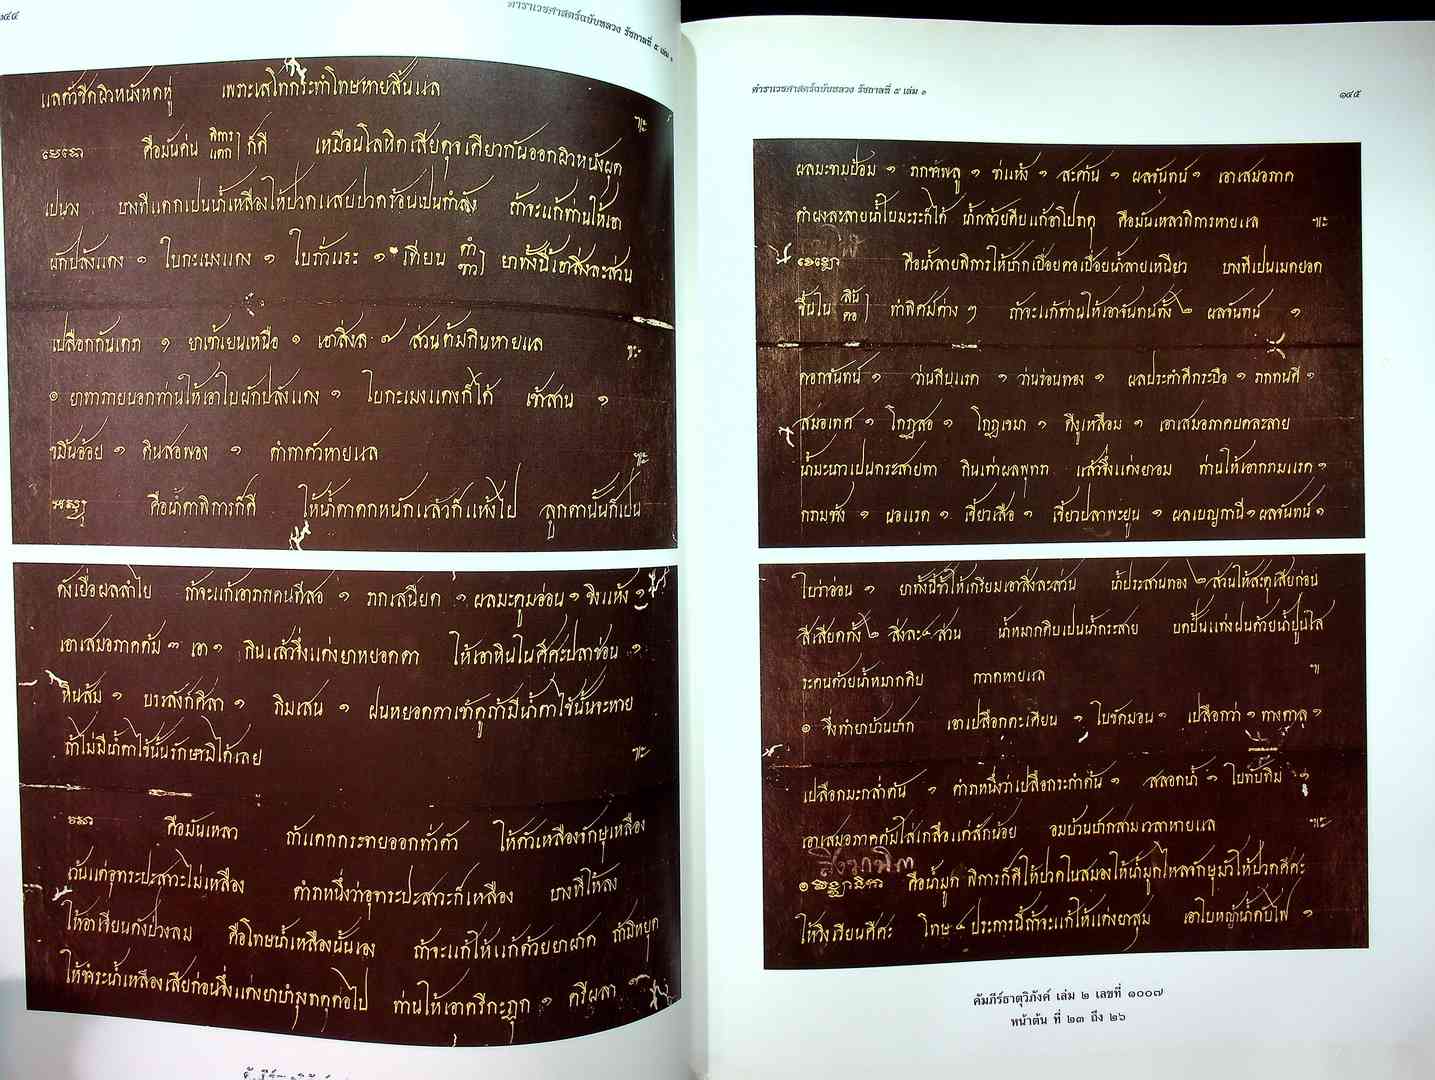 ๑๔๔
ตำราเวชศาสตร์ฉบับหลวง รัชกาลที่ ๕ เล่ม ๑
แลตัวซีดผิวหนังหดหู่ เพราะเสโทกระทำโทษหายสิ้นแล
คือมันค่น พิการ แตก ก็ดี เหมือนโลหิตเสียดุจเดียวกันออกผิวหนังผุด
เปนวง บางทีแตกเปนน้ำเหลืองให้ปวดแสบปวดร้อนเปนกำลัง ถ้าจะแก้ท่านให้เอา
ผักปลังแดง ๑ ใบกะเมงแดง ๑ ใบถั่วแระ ๑ เทียน ดำ ขาว ยาทั้งนี้เอาสิ่งละส่วน
เปลือกกันเกรา ๑ ยาเข้าเยนเหนือ ๑ เอาสิ่งล ๗ ส่วนต้มกินหายแล
๑ ยาทาภายนอกท่านให้เอาใบผักปลังแดง ๑ ใบกะเมงแดงก็ได้ เข้าสาน ๑
ขมิ้นอ้อย ๑ ดินสอพอง ๑ ตำทาตัวหายแล
คือน้ำตาพิการก็ดี ให้น้ำตาตกหนักแล้วก็แห้งไป ลูกตานั้นก็เปน
ดังเยื่อผลลำไย ถ้าจะแก้เอารากคนทีสอ ๑ รากเสนียด ๑ ผลมะตูมอ่อน ๑ ขิงแห้ง ๑
เอาเสมอภาคต้ม ๓ เอา ๑ กินแล้วจึ่งแต่งยาหยอดตา ให้เอาหินในศีศะปลาช่อน ๑
หินส้ม ๑ บรลังก์ศิลา ๑ ภิมเสน ๑ ฝนหยอดตาเข้าดูถ้ามีน้ำตาไซ้นั้นจะหาย
ถ้าไม่มีน้ำตาไซ้นั้นรักษามิได้เลย
คือมันเหลว ถ้าแตกกระจายออกทั่วตัว ให้ตัวเหลืองจักษุเหลือง
เว้นแต่อุทระปะสาวะไม่เหลือง ตำราหนึ่งว่าอุทระปะสาวะก็เหลือง บางทีให้ลง
ให้อาเจียนดังป่วงลม คือโทษน้ำเหลืองนั้นเอง ถ้าจะแก้ให้แก้ด้วยยาผ่าด ถ้ามิหยุด
ให้ชำระน้ำเหลืองเสียก่อนจึ่งแต่งยาบำรุงธาตุต่อไป ท่านให้เอาตรีกะฏุก ๑ ตรีผลา ๑
ตำราเวชศาสตร์ฉบับหลวง รัชกาลที่ ๕ เล่ม ๑
๑๔๕
ผลมะขามป้อม ๑ รากช้าพลู ๑ ข่าแห้ง ๑ สะค้าน ๑ ผลจันทน์ ๑ เอาเสมอภาค
ตำผงละลายน้ำใบมะระก็ได้ น้ำกล้วยดิบแก้อาโปธาตุ คือมันเหลวพิการหายแล
คือน้ำลายพิการให้ปากเปื่อยคอเปื่อยน้ำลายเหนียว บางทีเปนเมดยอด
ขึ้นใน ลิ้น คอ ทำพิศม์ต่าง ๆ ถ้าจะแก้ท่านให้เอาจันทน์ทั้ง ๒ ผลจันทน์ ๑
ดอกจันทน์ ๑ ว่านกีบแรด ๑ ว่านร่อนทอง ๑ ผลประคำดีกระบือ ๑ รากคนดี ๑
สมอเทศ ๑ โกฏสอ ๑ โกฏเขมา ๑ ดีงูเหลือม ๑ เอาเสมอภาคบดละลาย
น้ำมะนาวเปนกระสายทา กินเท่าผลพุทรา แล้วจึ่งแต่งยาอม ท่านให้เอากรามแรด ๑
กรามช้าง ๑ นอแรด ๑ เขี้ยวเสือ ๑ เขี้ยวปลาพะยูน ๑ ผลเบญกานี ๑ ผลจันทน์ ๑
ใบว่าอ่อน ๑ ยาทั้งนี้ทำให้เกรียมเอาสิ่งละส่วน น้ำประสานทอง ๒ ส่วนให้สะตุเสียก่อน
สีเสียดทั้ง ๒ สิ่งละ ๔ ส่วน น้ำหมากดิบเปนน้ำกระสาย บดปั้นแท่งฝนด้วยน้ำปูนใส
ระคนด้วยน้ำหมากดิบ กวาดหายแล
๑ จึ่งทำยาบ้วนปาก เอาเปลือกตะเคียน ๑ ใบขัดมอน ๑ เปลือกว่า ๑ ทางตาล ๑
เปลือกมะกล่ำต้น ๑ ตำราหนึ่งว่าเปลือกระกำต้น ๑ สลอดน้ำ ๑ ใบทับทิม ๑
เอาเสมอภาคต้มใส่เกลือแต่สักน้อย อมบ้วนปากสามเวลาหายแล
คือน้ำมูก พิการก็ดีให้ปวดในสมองให้น้ำมูกไหลจักษุมัวให้ปวดศีศะ
ให้วิงเวียนศีศะ โทษ ๔ ประการนี้ถ้าจะแก้ให้แต่งยาสุม เอาใบหญ้าน้ำดับไฟ ๑
คัมภีร์ธาตุวิภังค์ เล่ม ๒ เลขที่ ๑๐๐๗
หน้าต้น ที่ ๒๓ ถึง ๒๖